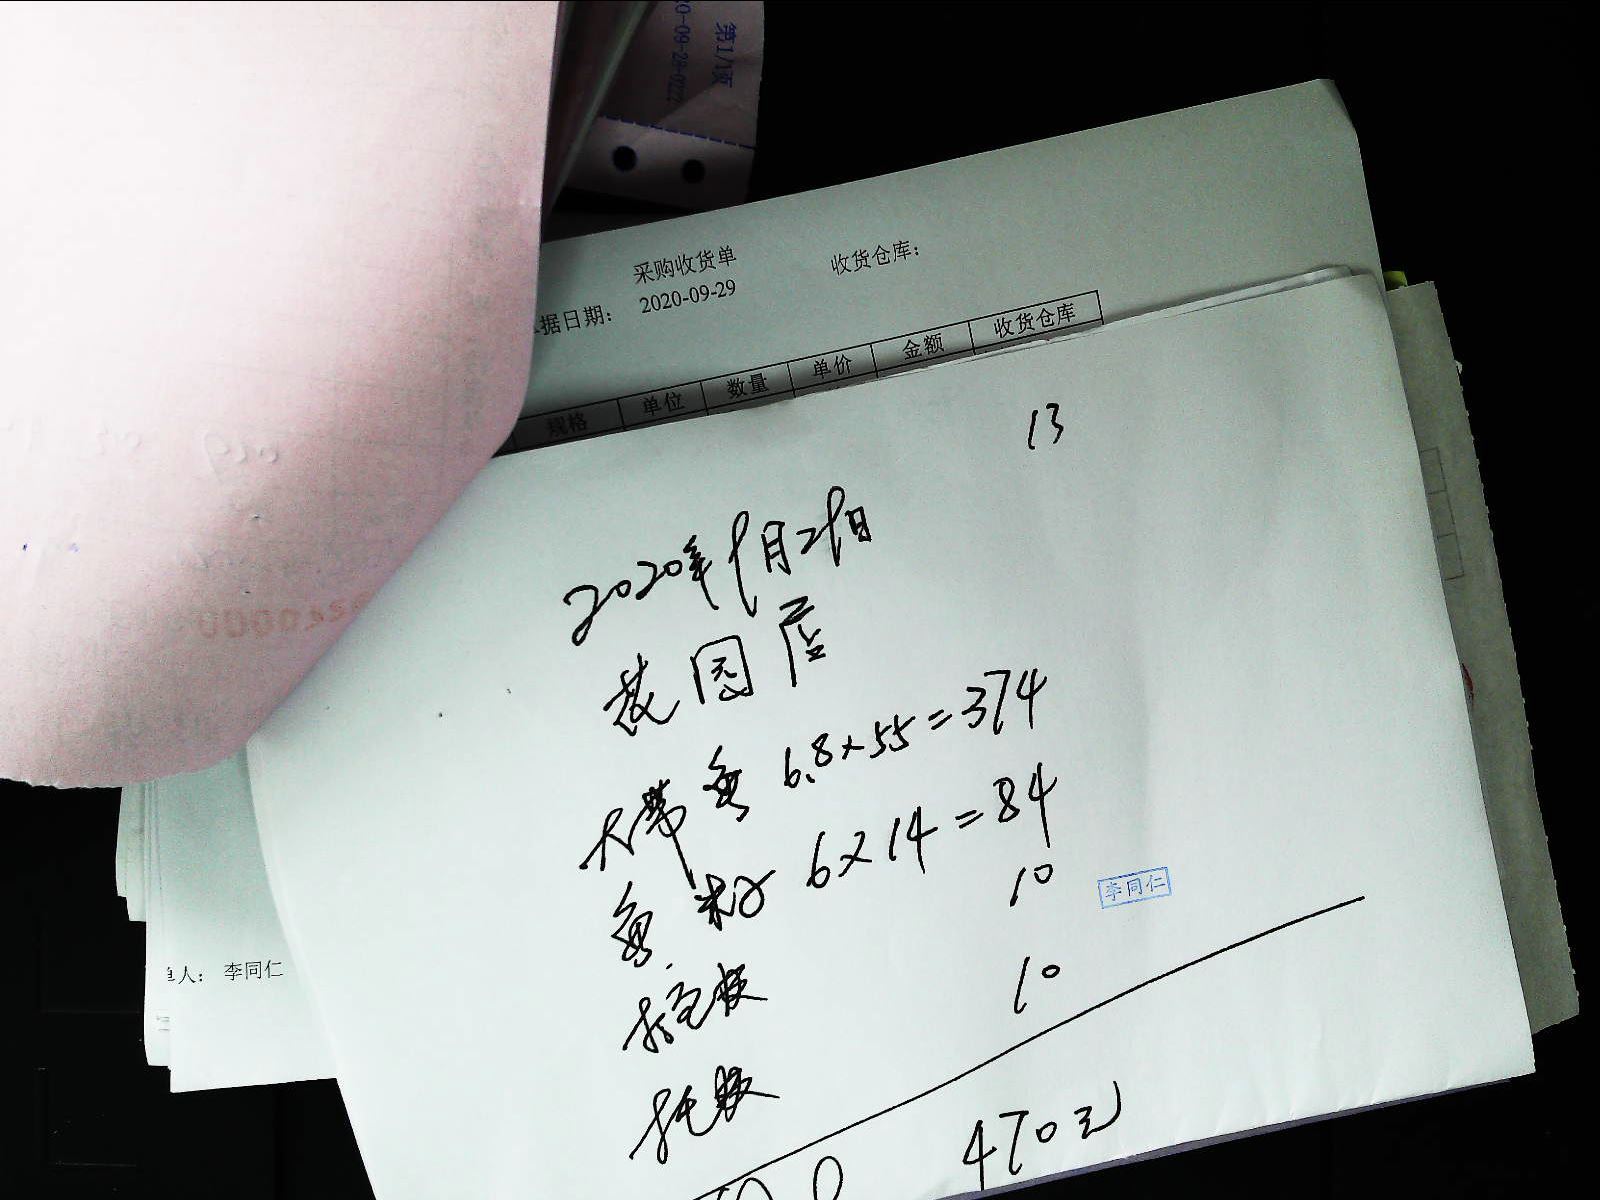 第1/1页
20-09-28-0222
采购收货单
收货仓库：
据日期： 2020-09-29
规格 单位 数量 单价 金额 收货仓库
13
2020年9月29日
花园店
大带鱼 6.8×55=374
鱼籽 6×14=84
10
李同仁
单人： 李同仁
10
托板
470元